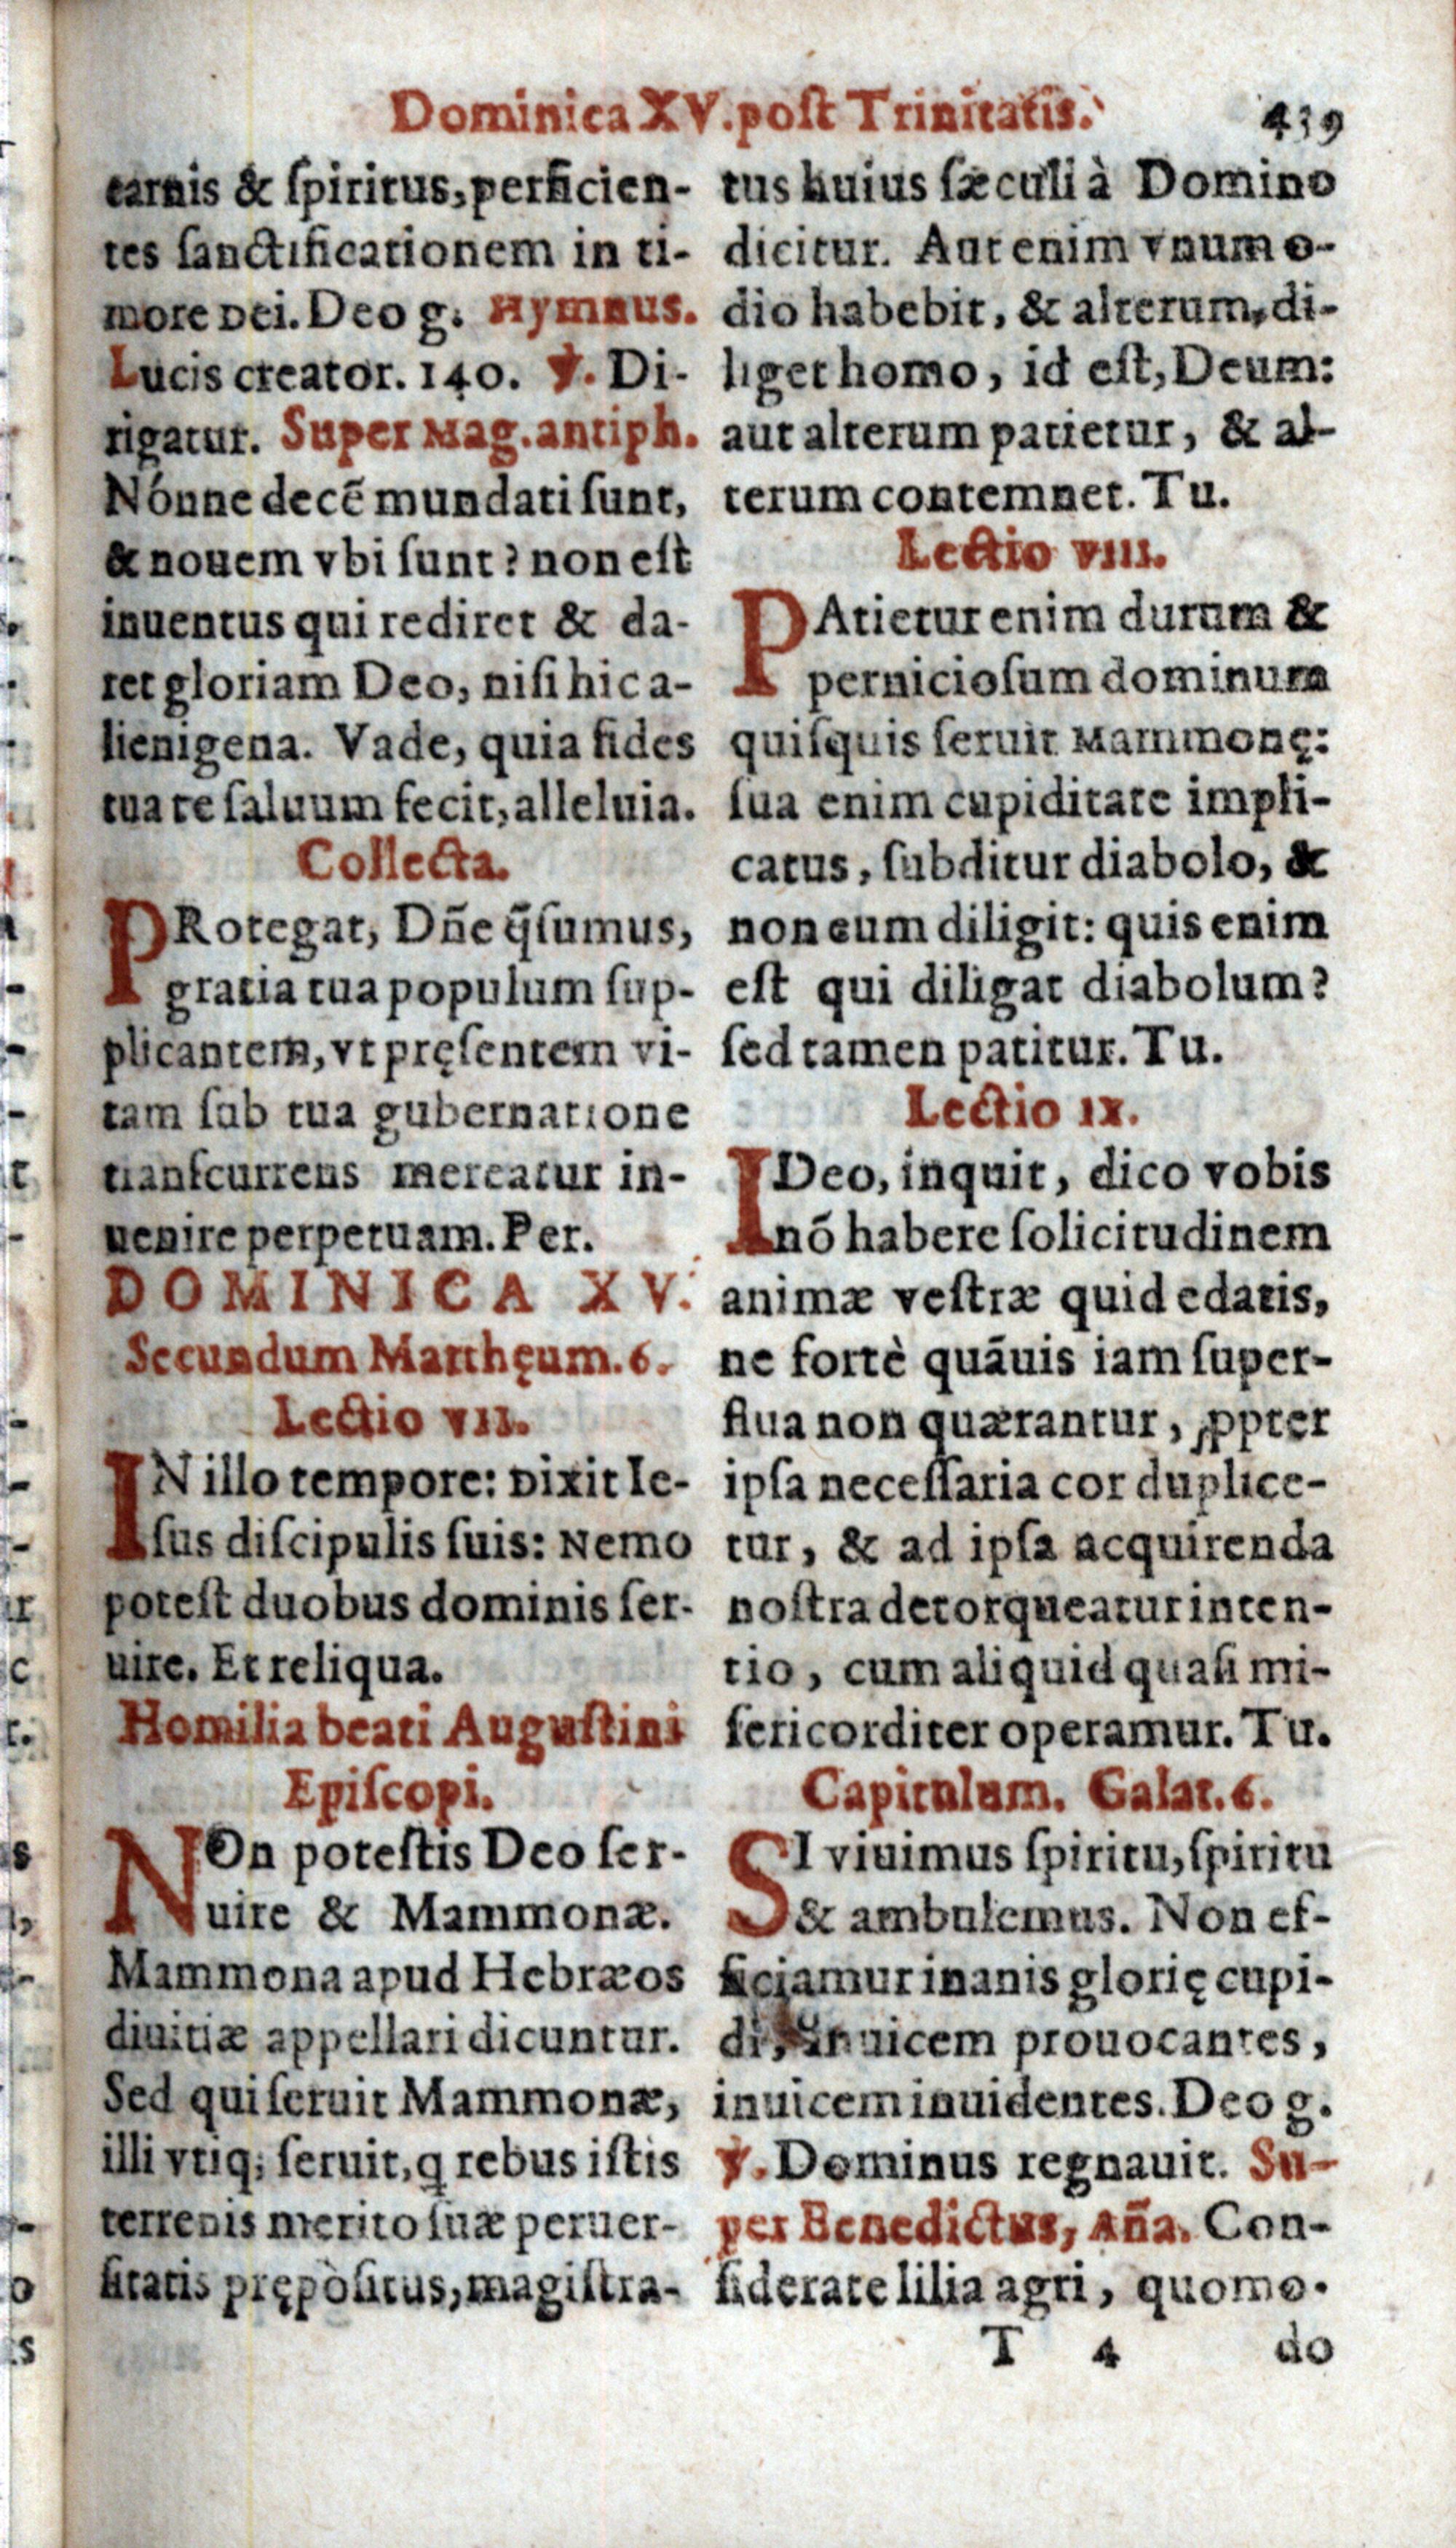 Dominica XV. post Trinitatis. 439
carnis & ſpiritus, perficien-
tes ſanctificationem in ti-
more Dei. Deo g. Hymnus.
Lucis creator. 140. ℣. Di-
rigatur. Super Mag. antiph.
Nónne decẽ mundati ſunt,
& nouem vbi ſunt? non eſt
inuentus qui rediret & da-
ret gloriam Deo, niſi hic a-
lienigena. Vade, quia fides
tua te ſaluum fecit, alleluia.
Collecta.
PRotegat, Dñe q̃ſumus,
gratia tua populum ſup-
plicantem, vt pręſentem vi-
tam ſub tua gubernatione
tranſcurrens mereatur in-
uenire perpetuam. Per.
DOMINICA XV.
Secundum Matthęum. 6.
Lectio VII.
IN illo tempore: Dixit Ie-
ſus diſcipulis ſuis: Nemo
poteſt duobus dominis ſer-
uire. Et reliqua.
Homilia beati Auguſtini
Epiſcopi.
NOn poteſtis Deo ſer-
uire & Mammonæ.
Mammona apud Hebræos
diuitiæ appellari dicuntur.
Sed qui ſeruit Mammonæ,
illi vtiq; ſeruit, q rebus iſtis
terrenis merito ſuæ peruer-
ſitatis prępòſitus, magiſtra-
tus huius ſæculi à Domino
dicitur. Aut enim vnum o-
dio habebit, & alterum, di-
liget homo, id eſt, Deum:
aut alterum patietur, & al-
terum contemnet. Tu.
Lectio VIII.
PAtietur enim durum &
pernicioſum dominum
quiſquis ſeruit Mammonę:
ſua enim cupiditate impli-
catus, ſubditur diabolo, &
non eum diligit: quis enim
eſt qui diligat diabolum?
ſed tamen patitur. Tu.
Lectio IX.
IDeo, inquit, dico vobis
nõ habere ſolicitudinem
animæ veſtræ quid edatis,
ne fortè quãuis iam ſuper-
flua non quærantur, ꝓpter
ipſa neceſſaria cor duplice-
tur, & ad ipſa acquirenda
noſtra detorqueatur inten-
tio, cum aliquid quaſi mi-
ſericorditer operamur. Tu.
Capitulum. Galat. 6.
SI viuimus ſpiritu, ſpiritu
& ambulemus. Non ef-
ficiamur inanis glorię cupi-
di, inuicem prouocantes,
inuicem inuidentes. Deo g.
℣. Dominus regnauit. Su-
per Benedictus, Aña. Con-
ſiderate lilia agri, quomo-
T 4 do